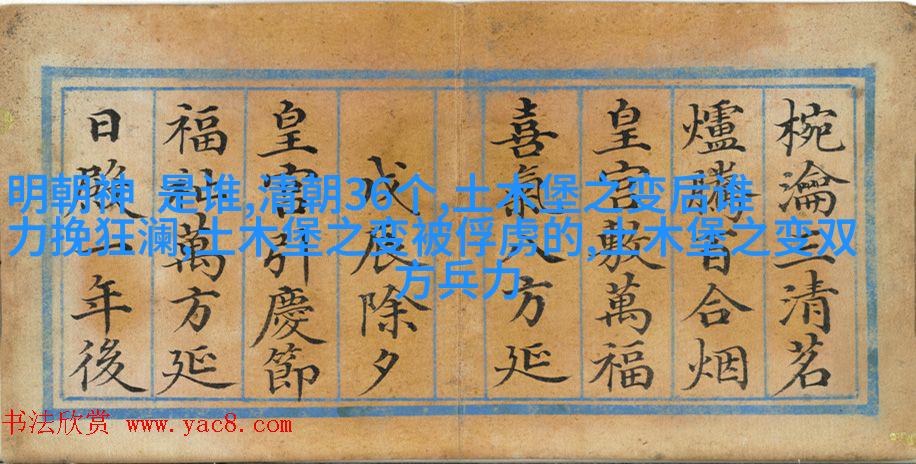 椀瀹三清茗
爐騰百合烟
皇宫敷萬福
喜氣八方延
戊辰除夕
皇宫引慶節
福祉萬方延
日殿一年後
明朝神 是谁,清朝36个,土木堡之变后谁
力挽狂澜,土木堡之变被俘虏的,土木堡之变双
方兵力
书法欣赏 www.yac8.com